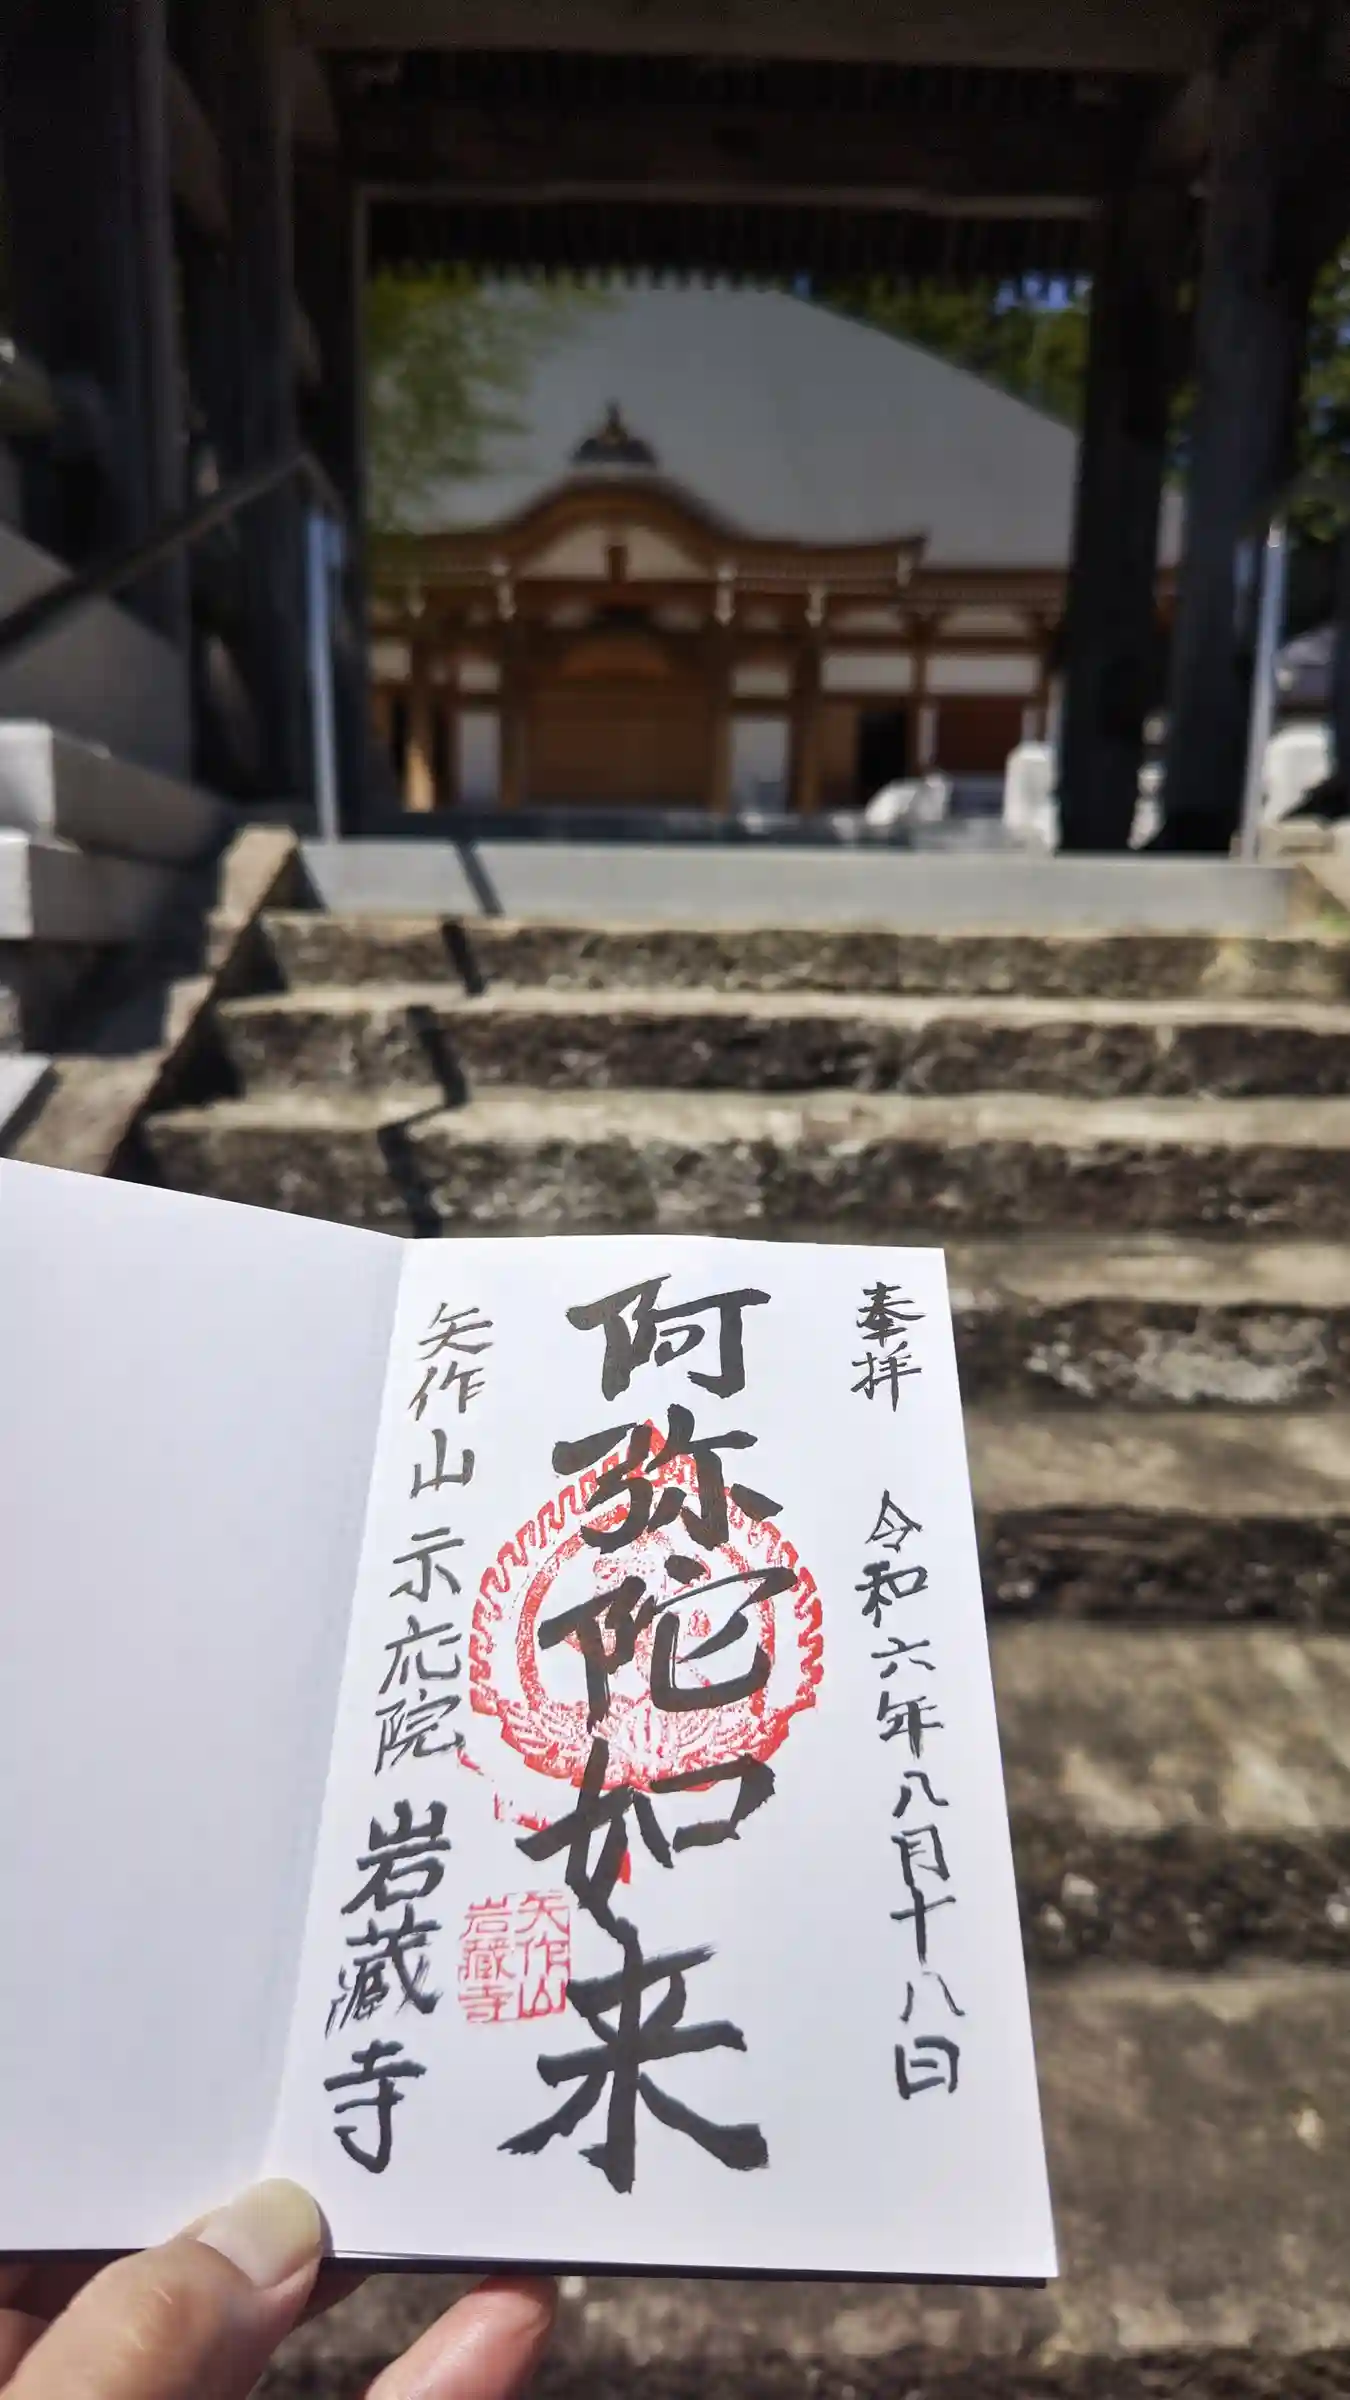 奉拝 令和六年八月十八日
阿弥陀如来
矢作山 示応院 岩蔵寺
矢作山
岩蔵寺